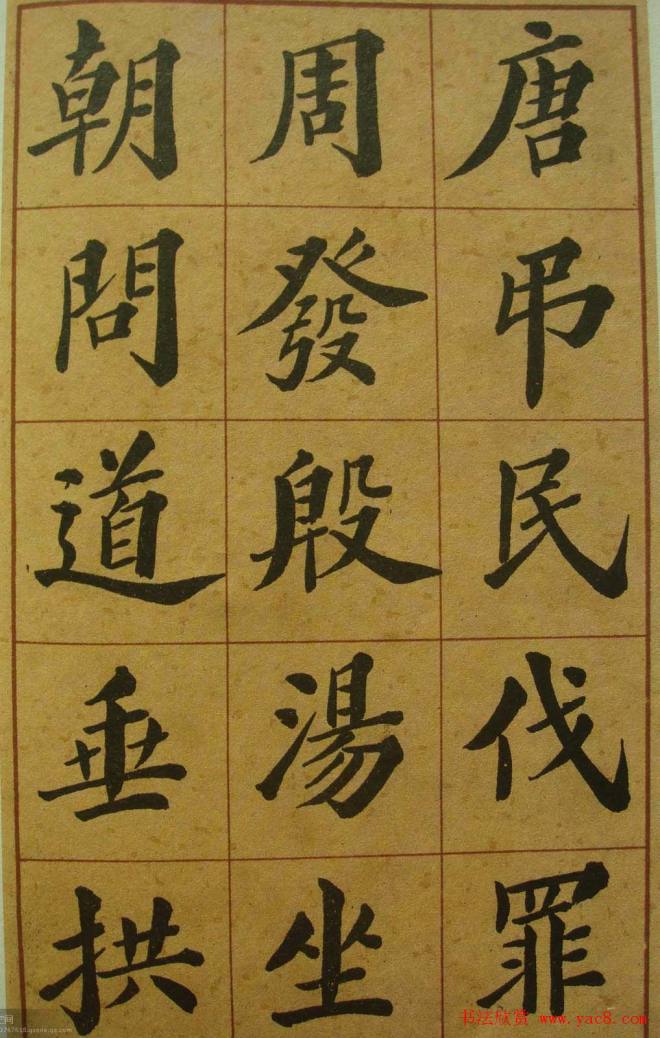 唐弔民伐罪
周發殷湯坐
朝問道垂拱
书法欣赏 www.yac8.com